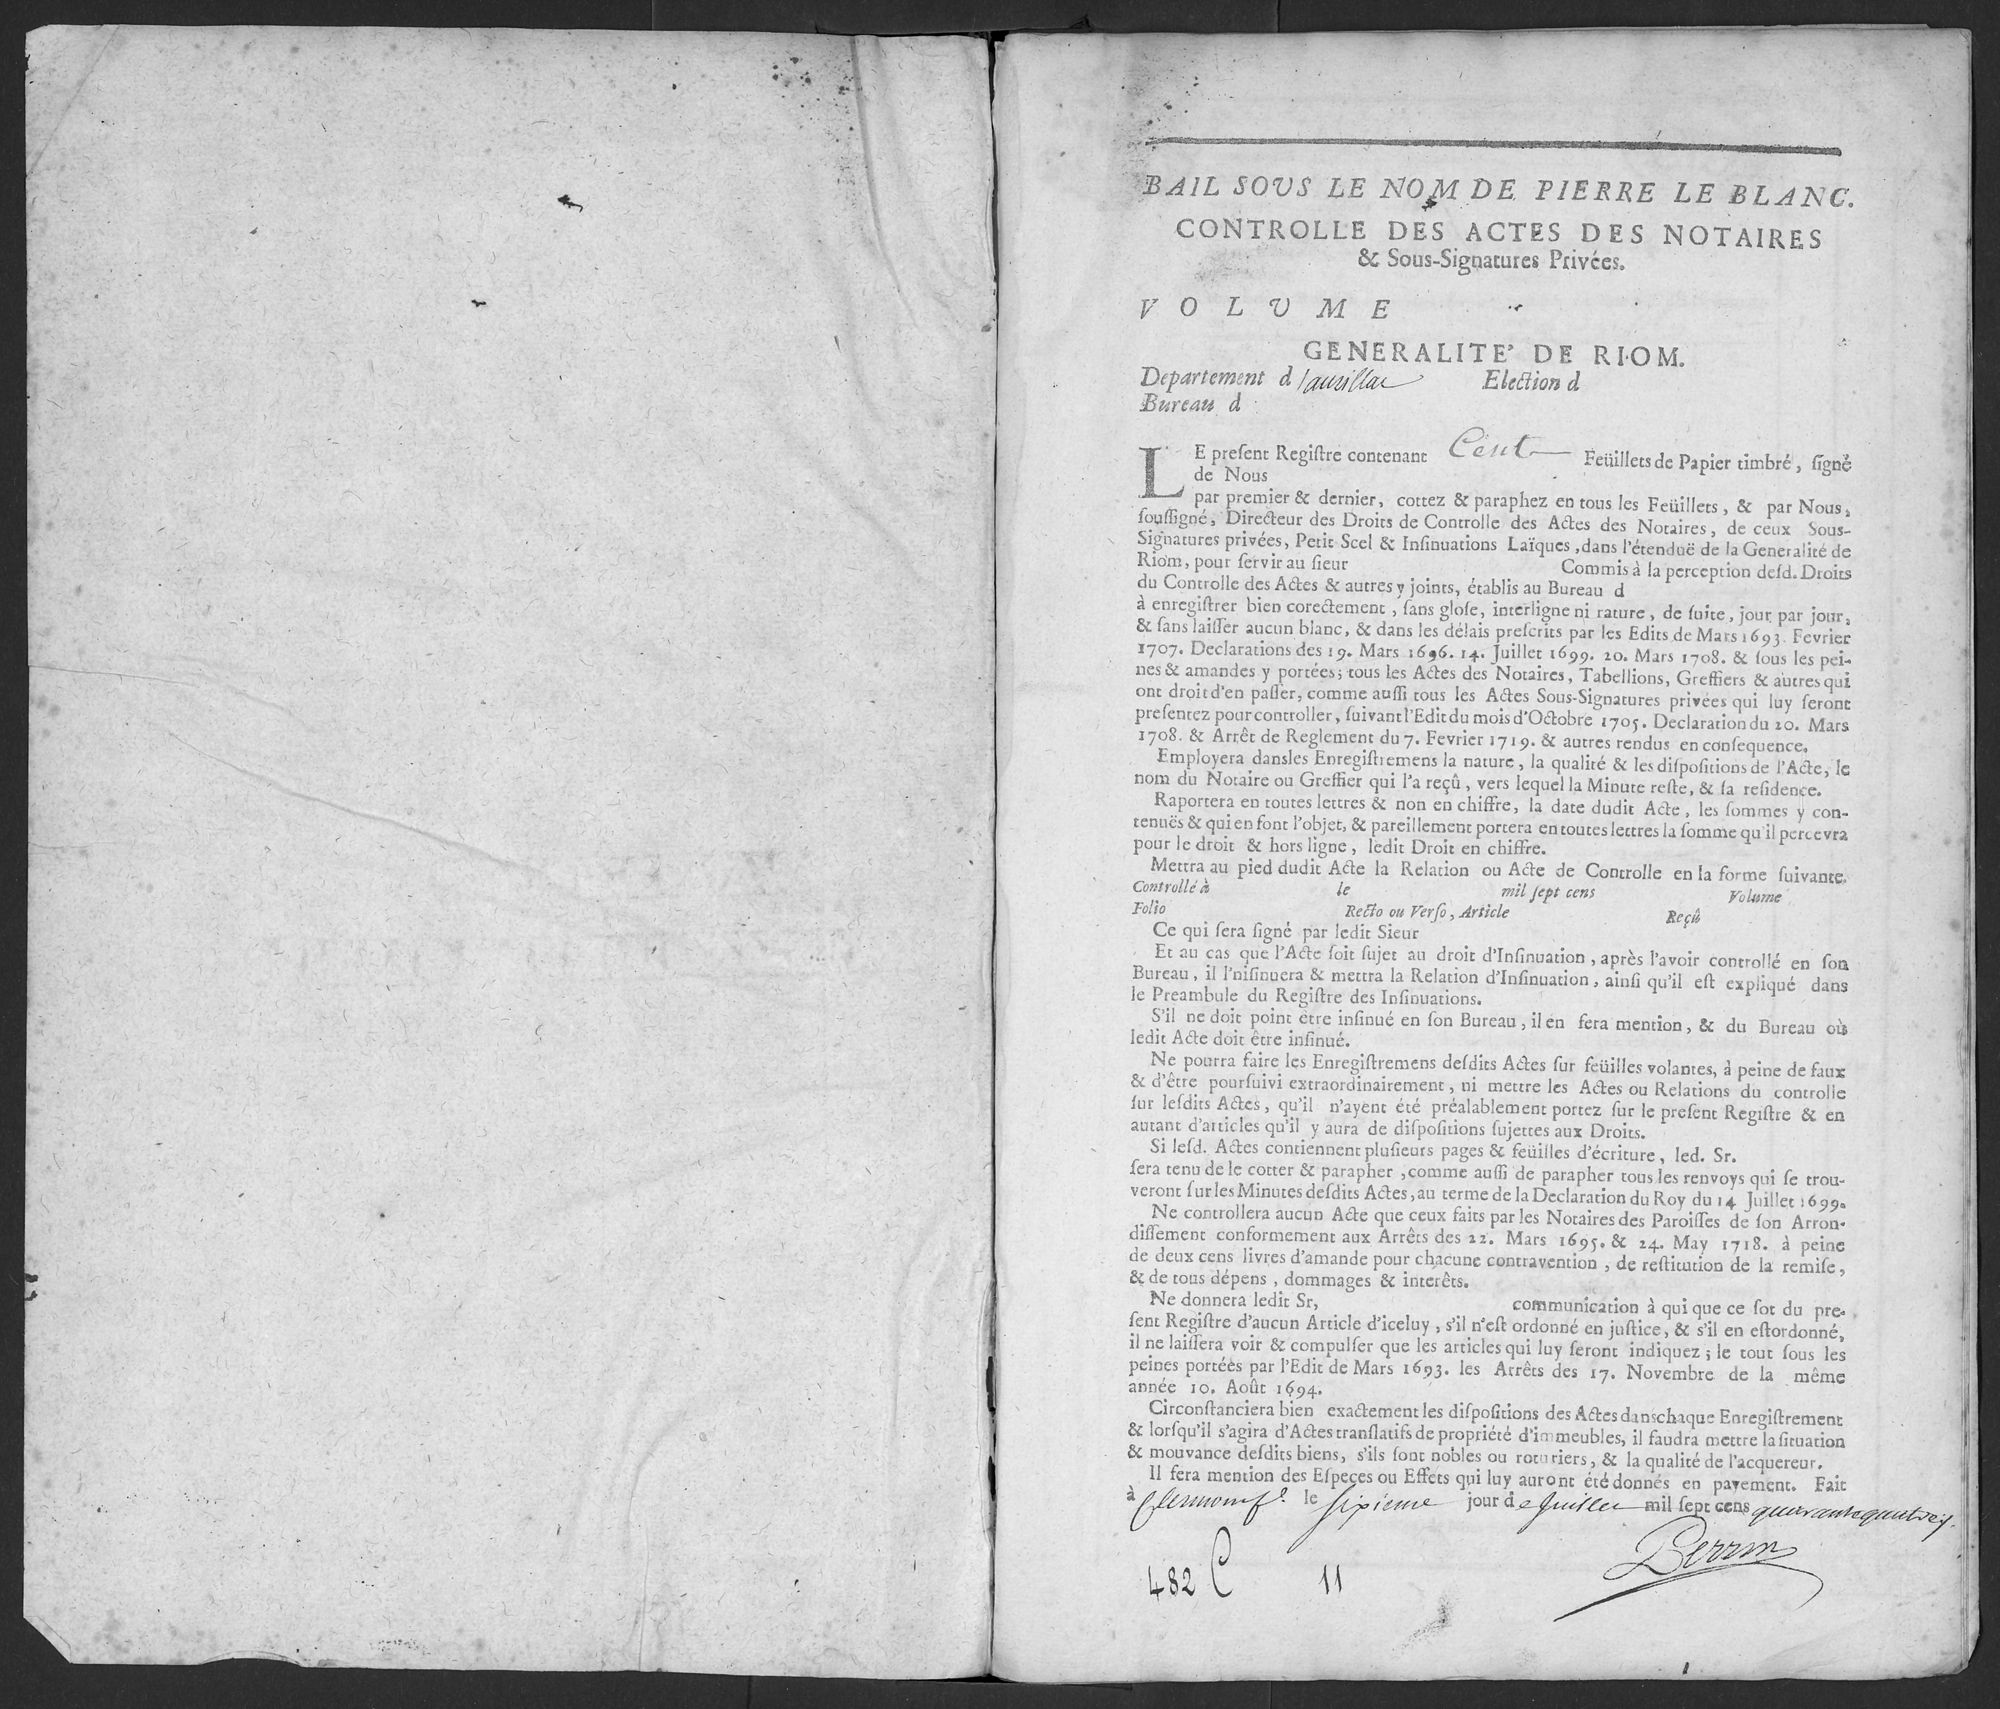 BAIL SOUS LE NOM DE PIERRE LE BLANC.
CONTROLLE DES ACTES DES NOTAIRES
& Sous-Signatures Privées.
VOLUME
GENERALITE' DE RIOM.
Departement d'aurillac Election d
Bureau d
LE preſent Regiſtre contenant Cent Feüillets de Papier timbré, ſigné
de Nous
par premier & dernier, cottez & paraphez en tous les Feüillets, & par Nous,
ſouſſigné, Directeur des Droits de Controlle des Actes des Notaires, de ceux Sous-
Signatures privées, Petit Scel & Inſinuations Laïques, dans l'étenduë de la Generalité de
Riom, pour ſervir au ſieur Commis à la perception deſd. Droits
du Controlle des Actes & autres y joints, établis au Bureau d
à enregiſtrer bien corectement, ſans gloſe, interligne ni rature, de ſuite, jour par jour,
& ſans laiſſer aucun blanc, & dans les délais preſcrits par les Edits de Mars 1693. Fevrier
1707. Declarations des 19. Mars 1696. 14. Juillet 1699. 20. Mars 1708. & ſous les pei-
nes & amandes y portées; tous les Actes des Notaires, Tabellions, Greffiers & autres qui
ont droit d'en paſſer, comme auſſi tous les Actes Sous-Signatures privées qui luy ſeront
preſentez pour controller, ſuivant l'Edit du mois d'Octobre 1705. Declaration du 20. Mars
1708. & Arrêt de Reglement du 7. Fevrier 1719. & autres rendus en conſequence.
Employera dansles Enregiſtremens la nature, la qualité & les diſpoſitions de l'Acte, le
nom du Notaire ou Greffier qui l'a reçû, vers lequel la Minute reſte, & ſa reſidence.
Raportera en toutes lettres & non en chiffre, la date dudit Acte, les ſommes y con-
tenuës & qui en font l'objet, & pareillement portera en toutes lettres la ſomme qu'il percevra
pour le droit & hors ligne, ledit Droit en chiffre.
Mettra au pied dudit Acte la Relation ou Acte de Controlle en la forme ſuivante.
Controllé à le mil ſept cens Volume
Folio Recto ou Verſo, Article Reçû
Ce qui ſera ſigné par ledit Sieur
Et au cas que l'Acte ſoit ſujet au droit d'Inſinuation, après l'avoir controllé en ſon
Bureau, il l'niſinuera & mettra la Relation d'Inſinuation, ainſi qu'il eſt expliqué dans
le Preambule du Regiſtre des Inſinuations.
S'il ne doit point être inſinué en ſon Bureau, il en fera mention, & du Bureau où
ledit Acte doit être inſinué.
Ne pourra faire les Enregiſtremens deſdits Actes ſur feüilles volantes, à peine de faux
& d'être pourſuivi extraordinairement, ni mettre les Actes ou Relations du controlle
ſur leſdits Actes, qu'il n'ayent été préalablement portez ſur le preſent Regiſtre & en
autant d'articles qu'il y aura de diſpoſitions ſujettes aux Droits.
Si leſd. Actes contiennent pluſieurs pages & feüilles d'écriture, led. Sr.
ſera tenu de le cotter & parapher, comme auſſi de parapher tous les renvoys qui ſe trou-
veront ſur les Minutes deſdits Actes, au terme de la Declaration du Roy du 14 Juillet 1699.
Ne controllera aucun Acte que ceux faits par les Notaires des Paroiſſes de ſon Arron-
diſſement conformement aux Arrêts des 22. Mars 1695. & 24. May 1718. à peine
de deux cens livres d'amande pour chacune contravention, de reſtitution de la remiſe,
& de tous dépens, dommages & interêts.
Ne donnera ledit Sr, communication à qui que ce ſot du pre-
ſent Regiſtre d'aucun Article d'iceluy, s'il n'eſt ordonné en juſtice, & s'il en eſtordonné,
il ne laiſſera voir & compulſer que les articles qui luy ſeront indiquez; le tout ſous les
peines portéés par l'Edit de Mars 1693. les Arrêts des 17. Novembre de la même
année 10. Août 1694.
Circonſtanciera bien exactement les diſpoſitions des Actes danschaque Enregiſtrement
& lorſqu'il s'agira d'Actes tranſlatifs de propriété d'immeubles, il faudra mettre la ſituation
& mouvance deſdits biens, s'ils ſont nobles ou roturiers, & la qualité de l'acquereur.
Il fera mention des Eſpeces ou Effets qui luy auront été donnés en payement. Fait
à le ſixieme jour de Juillet mil ſept cens
Perrin
482 C 11